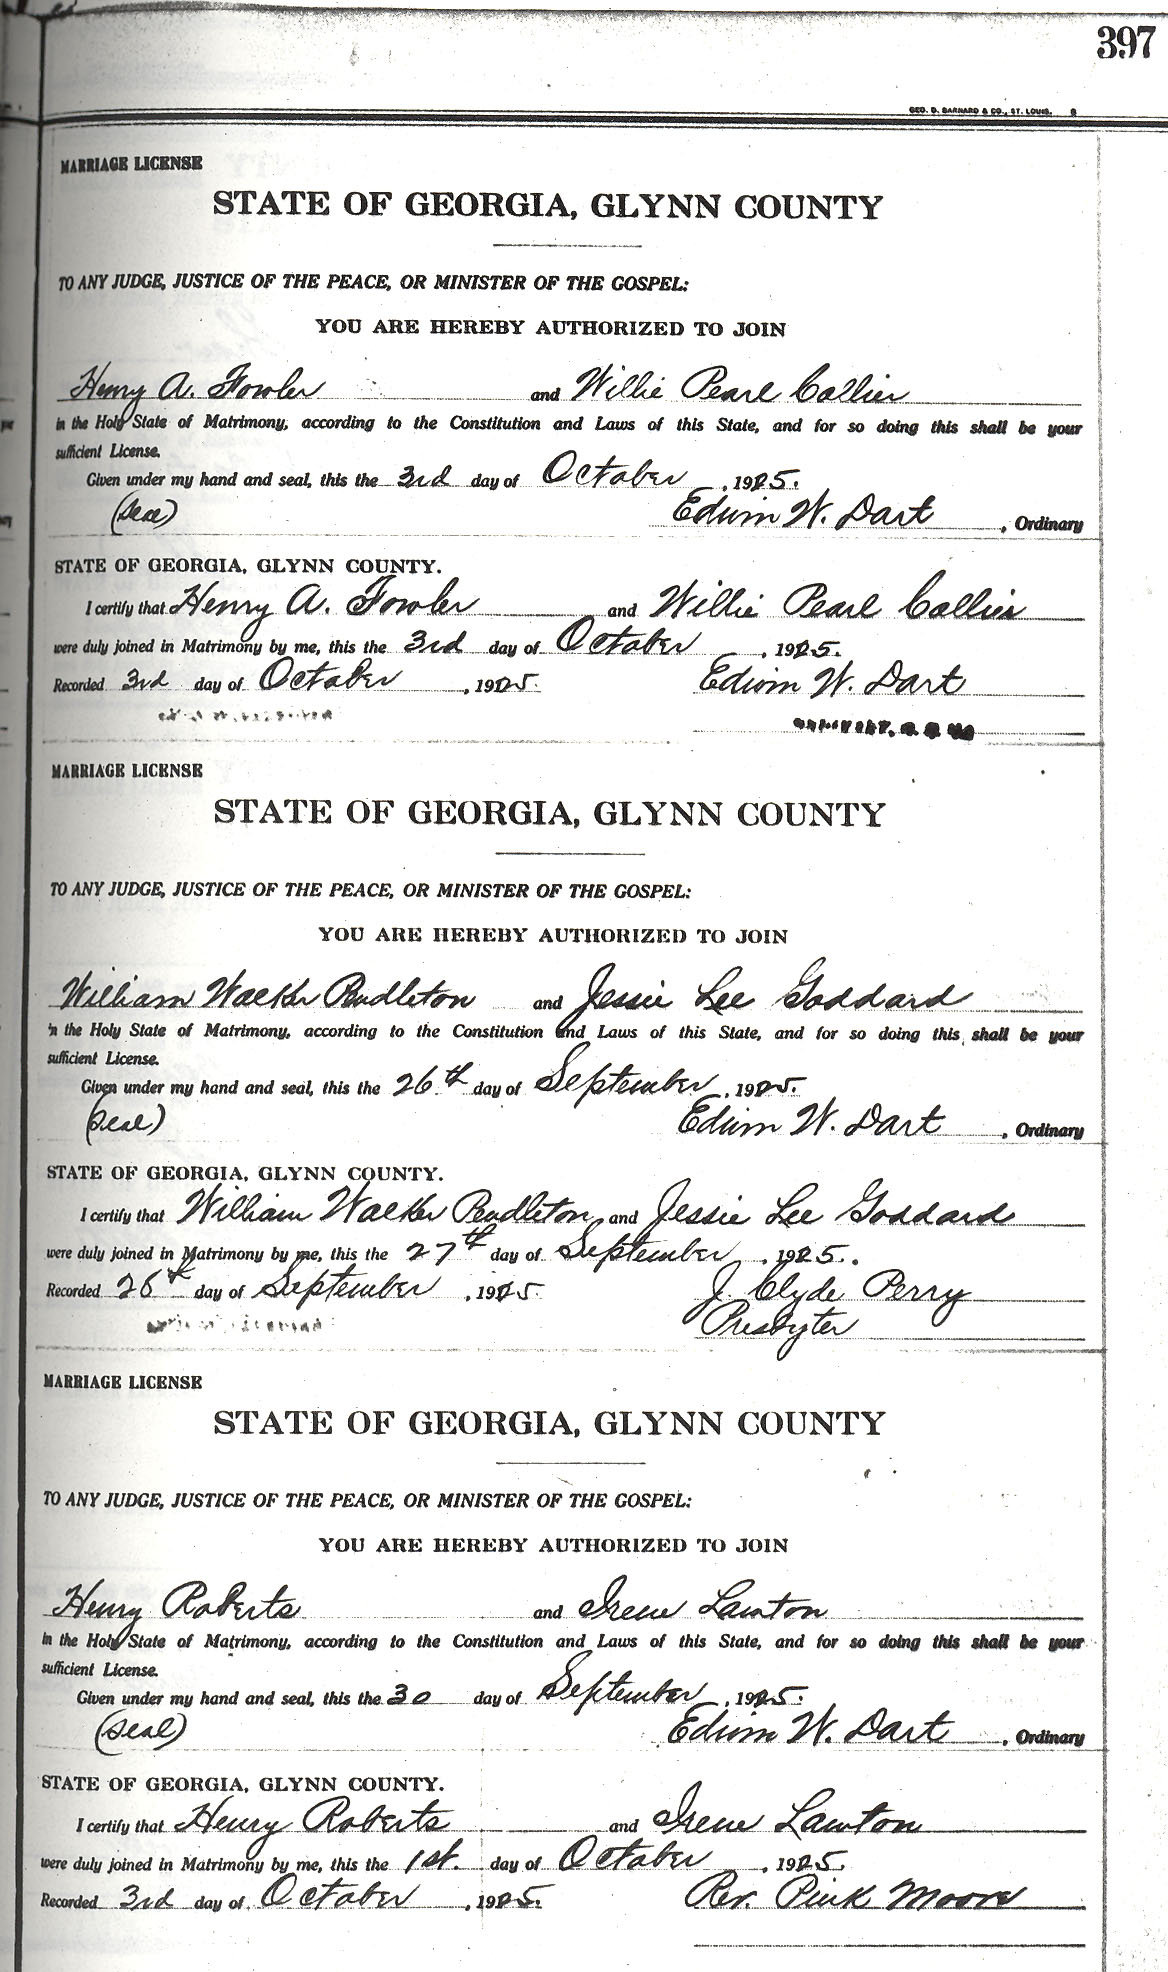 397
GEO. D. BARNARD & CO., ST. LOUIS.
MARRIAGE LICENSE
STATE OF GEORGIA, GLYNN COUNTY
TO ANY JUDGE, JUSTICE OF THE PEACE, OR MINISTER OF THE GOSPEL:
YOU ARE HEREBY AUTHORIZED TO JOIN
Henry A. Fowler and Willie Pearl Collier
in the Holy State of Matrimony, according to the Constitution and Laws of this State, and for so doing this shall be your
sufficient License.
Given under my hand and seal, this the 3rd day of October, 1925.
(Seal) Edwin W. Dart, Ordinary
STATE OF GEORGIA, GLYNN COUNTY.
I certify that Henry A. Fowler and Willie Pearl Collier
were duly joined in Matrimony by me, this the 3rd day of October, 1925.
Recorded 3rd day of October, 1925. Edwin W. Dart
MARRIAGE LICENSE
STATE OF GEORGIA, GLYNN COUNTY
TO ANY JUDGE, JUSTICE OF THE PEACE, OR MINISTER OF THE GOSPEL:
YOU ARE HEREBY AUTHORIZED TO JOIN
William Walker Pendleton and Jessie Lee Goddard
in the Holy State of Matrimony, according to the Constitution and Laws of this State, and for so doing this shall be your
sufficient License.
Given under my hand and seal, this the 26th day of September, 1925.
(Seal) Edwin W. Dart, Ordinary
STATE OF GEORGIA, GLYNN COUNTY.
I certify that William Walker Pendleton and Jessie Lee Goddard
were duly joined in Matrimony by me, this the 27th day of September, 1925.
Recorded 28th day of September, 1925. J. Clyde Perry
Presbyter
MARRIAGE LICENSE
STATE OF GEORGIA, GLYNN COUNTY
TO ANY JUDGE, JUSTICE OF THE PEACE, OR MINISTER OF THE GOSPEL:
YOU ARE HEREBY AUTHORIZED TO JOIN
Henry Roberts and Irene Lawton
in the Holy State of Matrimony, according to the Constitution and Laws of this State, and for so doing this shall be your
sufficient License.
Given under my hand and seal, this the 30 day of September, 1925.
(Seal) Edwin W. Dart, Ordinary
STATE OF GEORGIA, GLYNN COUNTY.
I certify that Henry Roberts and Irene Lawton
were duly joined in Matrimony by me, this the 1st. day of October, 1925.
Recorded 3rd day of October, 1925. Rev. Pink Moore